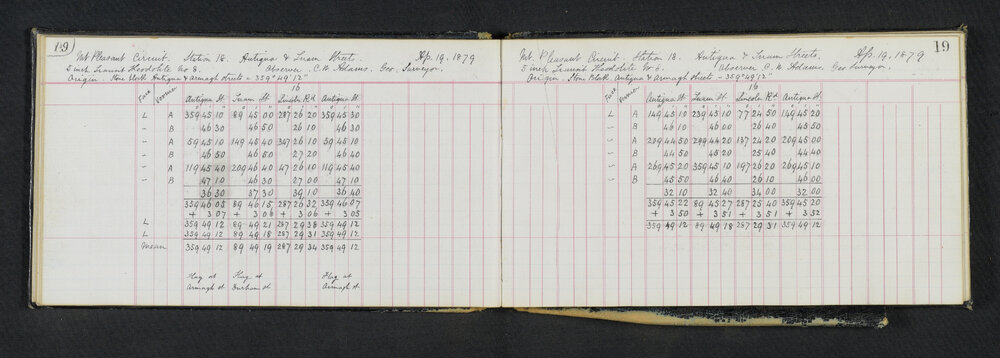 19
Mt Pleasant Circuit. Station 18. Antigua & Suam Streets. Ap. 19. 1879
5 inch Transit Theodolite No 8. Observer. C. W. Adams. Geo. Surveyor.
Origin. Stone Block Antigua & Armagh Streets = 359° 49' 12"
16
Face Vernier Antigua St. Suam St Lincoln Rd Antigua St.
L A 359 45 10 89 45 00 287 26 20 359 45 30
" B 46 30 46 50 26 10 46 30
" A 59 45 10 149 45 40 347 26 10 59 45 10
" B 46 50 46 50 27 20 46 40
" A 119 45 40 209 46 40 47 26 10 119 45 40
" B 47 10 46 30 27 00 47 10
36 30 37 30 39 10 36 40
359 46 05 89 46 15 287 26 32 359 46 07
+ 3 07 + 3 06 + 3 06 + 3 05
L 359 49 12 89 49 21 287 29 38 359 49 12
L 359 49 12 89 49 18 287 29 31 359 49 12
mean 359 49 12 89 49 19 287 29 34 359 49 12
Flag at Flag at Flag at
Armagh st Durham st Armagh st
19
Mt. Pleasant Circuit Station 18. Antigua & Suam Streets. Ap. 19. 1879
5 inch Transit Theodolite No 8. Observer C. W. Adams Geo Surveyor.
Origin. Stone Block Antigua & Armagh streets = 359° 49' 12"
16
Face Vernier Antigua St. Suam St. Lincoln Rd Antigua St.
L A 149 45 10 239 45 10 77 24 50 149 45 20
" B 46 10 46 00 26 40 45 50
" A 209 44 50 299 44 20 137 24 20 209 45 00
" B 44 50 45 20 25 40 44 40
" A 269 45 20 359 45 10 197 26 20 269 45 10
" B 45 50 46 40 26 10 46 00
32 10 32 40 34 00 32 00
359 45 22 89 45 27 287 25 40 359 45 20
+ 3 50 + 3 51 + 3 51 + 3 52
359 49 12 89 49 18 287 29 31 359 49 12